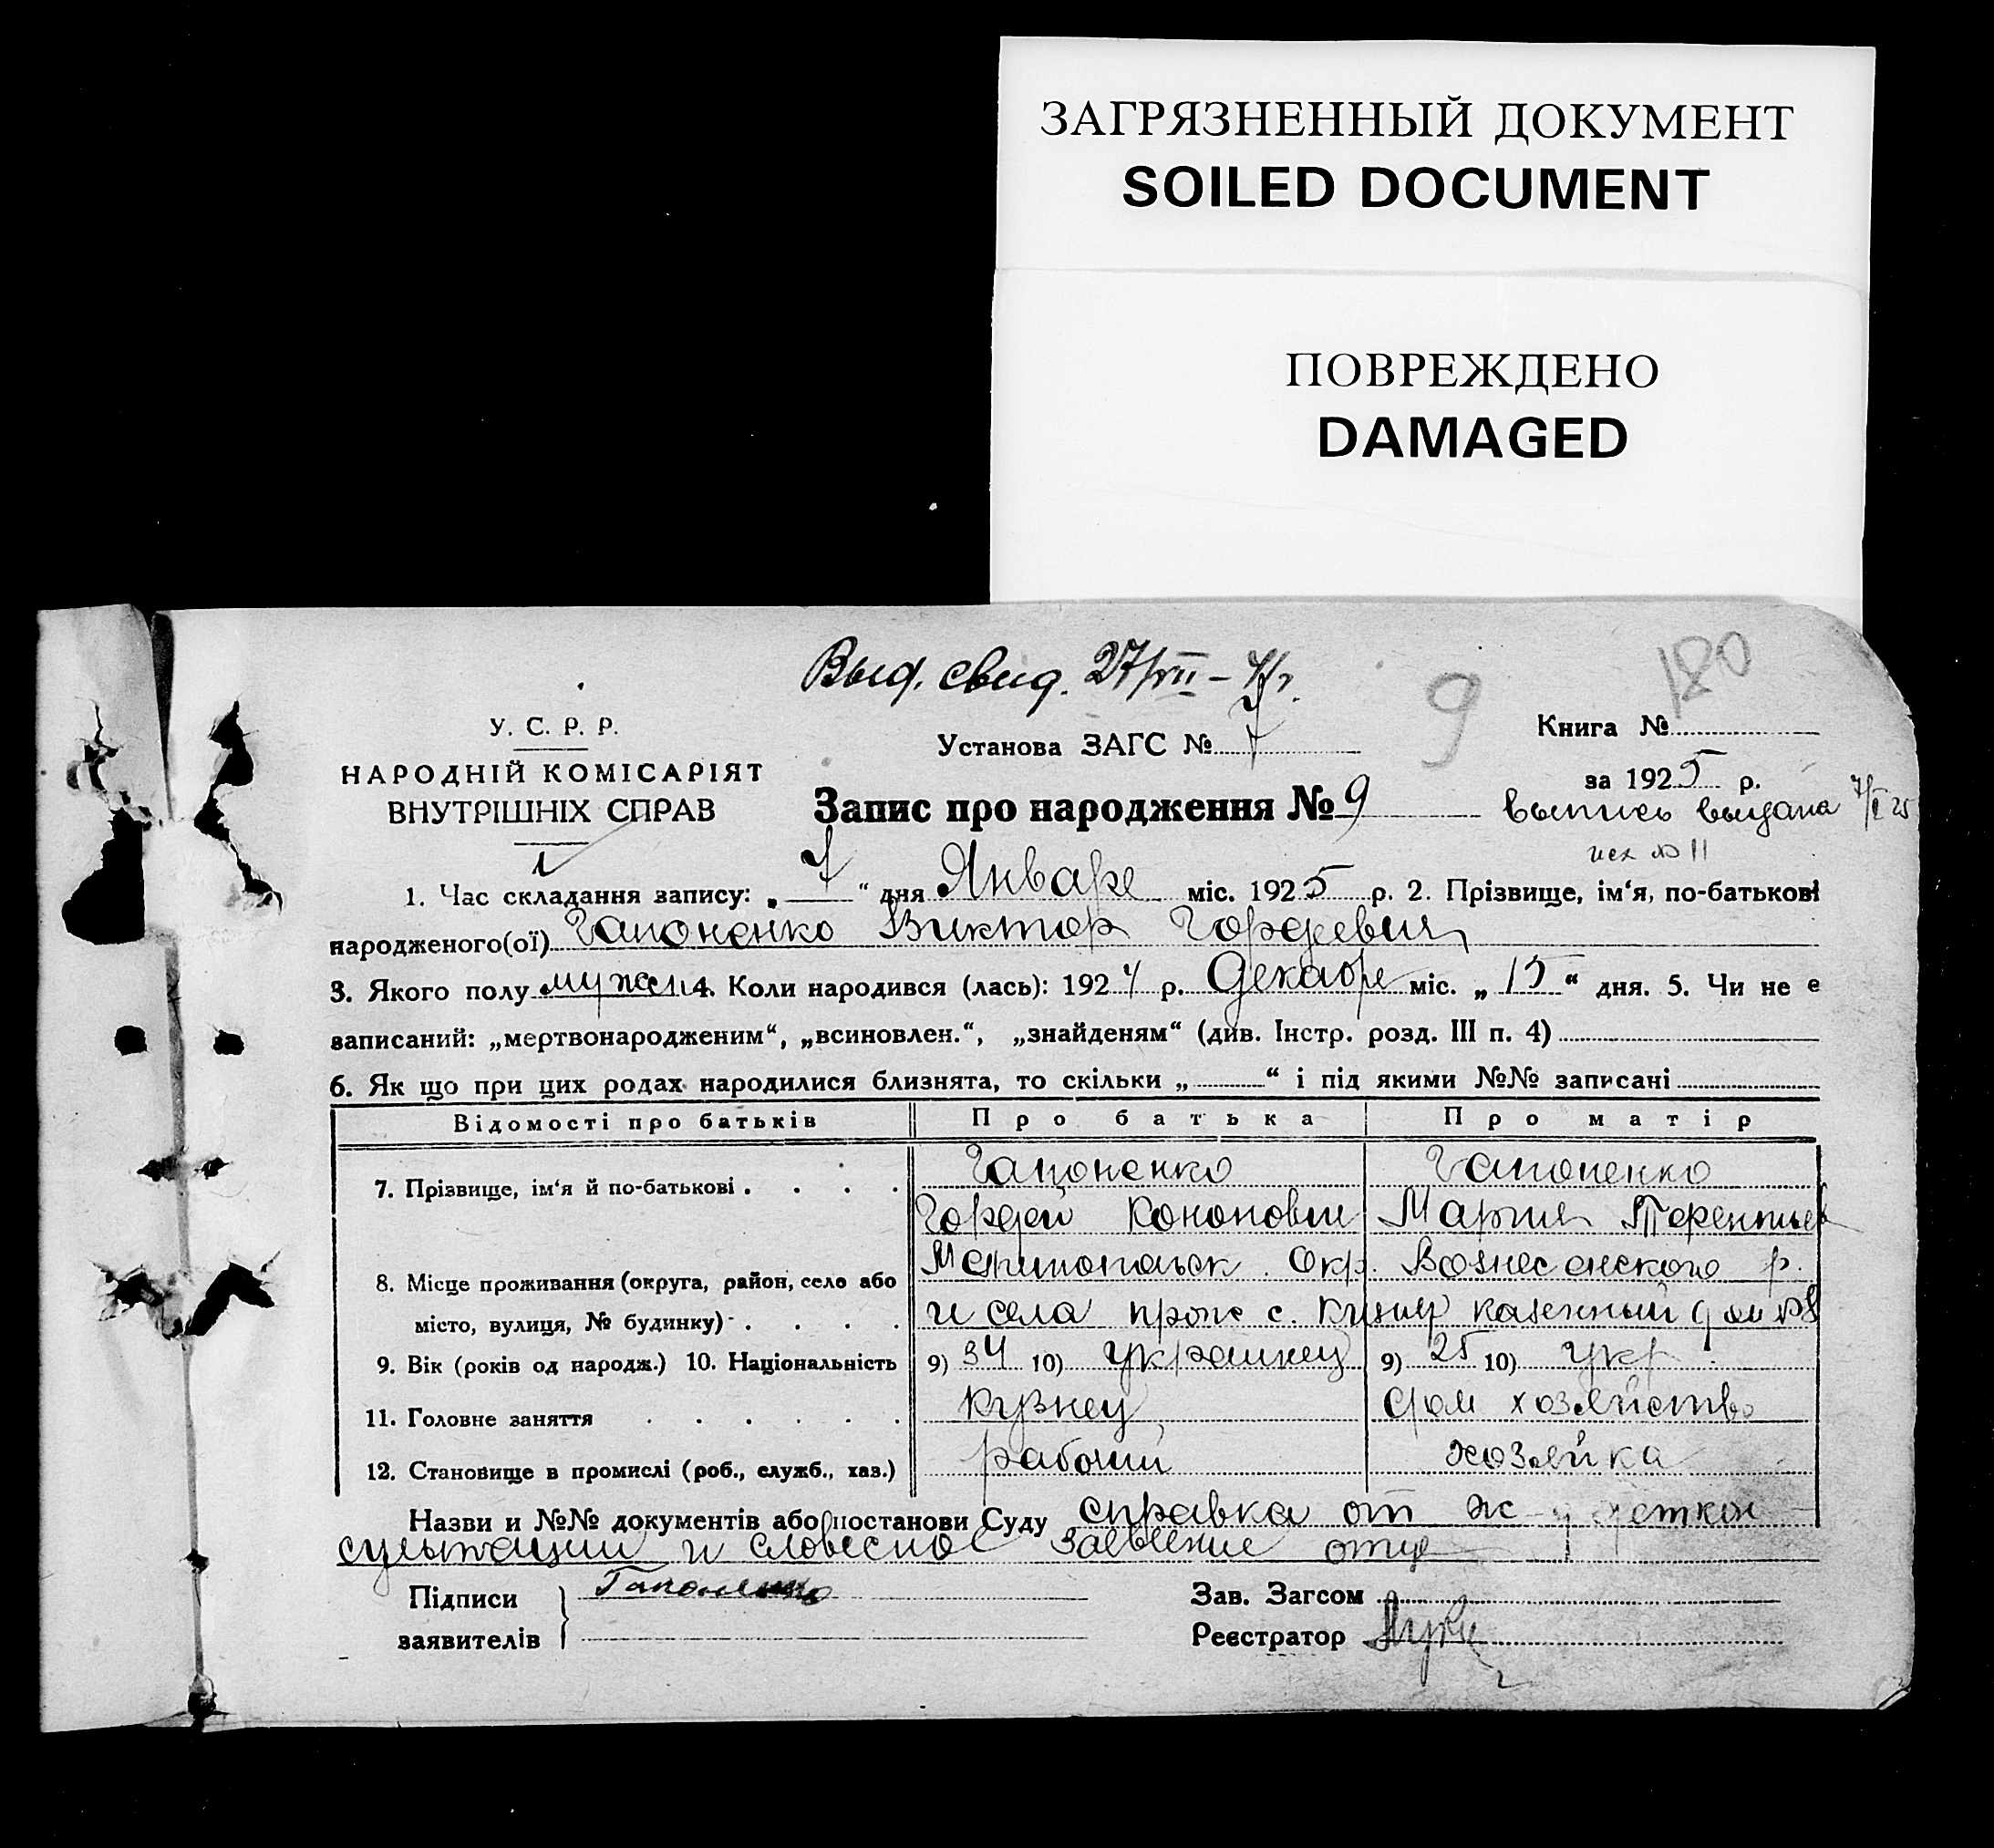 ЗАГРЯЗНЕННЫЙ ДОКУМЕНТ
SOILED DOCUMENT
ПОВРЕЖДЕНО
DAMAGED
Выд. свид. 27/VII – 
180
9
У. С. Р. Р.
НАРОДНІЙ КОМІСАРІЯТ
ВНУТРІШНІХ СПРАВ
Установа ЗАГС № 7
Книга №
за 1925 р.
Запис про народження № 9
выпись выдана 7/I 25
исх № 11
1. Час складання запису: „ 7 “ дня Января міс. 1925 р. 2. Прізвище, ім‘я, по-батькові
народженого(ої) Гапоненко Виктор Гордеевич
3. Якого полу мужск 4. Коли народився (лась): 1924 р. Декабре міс. „ 15 “ дня. 5. Чи не е
записаний: „мертвонародженим“, „всиновлен.“, „знайденям“ (див. Інстр. розд. III п. 4)
6. Як що при цих родах народилися близнята, то скільки „ “ і під якими №№ записані
Відомості про батьків Про батька Про матір
7. Прізвище, ім‘я й по-батькові . . . . Гапоненко Гапоненко
Гордей Кононович Мария Терентьев
8. Місце проживання (округа, район, село або Мелитопольск. Окр. Вознесенского р.
місто, вулиця, № будинку) . . . . и села прож с. казенный дом №8
9. Вік (років од народж.) 10. Національність 9) 34 10) Украинец 9) 25 10) Укр
11. Головне заняття . . . . . . Кузнец дом хозяйство
12. Становище в промислі (роб., служб., хаз.) рабочий хозяйка
Назви и №№ документів або постанови Суду справка от ж-д деткон-
сультации и словесное заявление отца
Підписи Гапоненко
заявителів
Зав. Загсом
Реєстратор